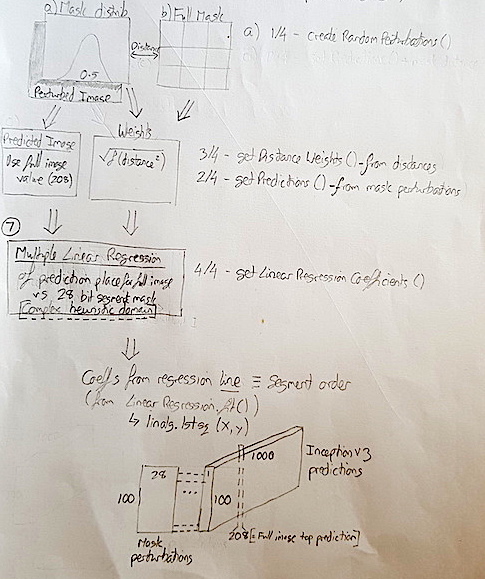 a) Mask distrib
b) Full Mask
Distance
0.5
Perturbed Image
a) 1/4 - create Random Perturbations()
Predicted Image
Use full image
value (208)
Weights
√f(distance²)
3/4 - get Distance Weights() - from distances
2/4 - get Predictions() - from mask perturbations
7
Multiple Linear Regression
of prediction place for full image
vs 28 bit segment mask
[Complex heuristic domain]
4/4 - get Linear Regression Coefficients()
Coeffs from regression line ≡ Segment order
(from Linear Regression.fit())
↳ linalg.lstsq (X,y)
28
100
...
1
100
1000
Inception v3
predictions
208 [= Full image top prediction]
Mask
perturbations